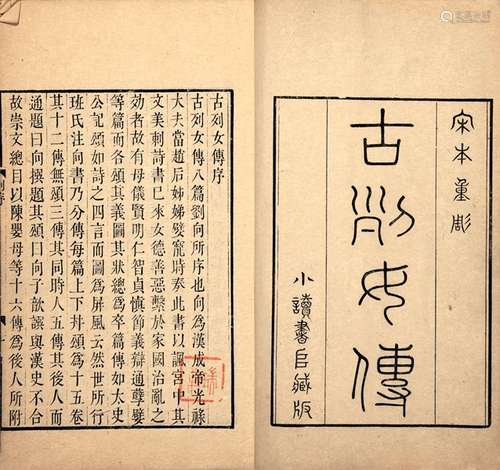 宋本重彫
古列女傳
小讀書𠂤藏版
古列女傳序
古列女傳八篇劉向所序也向為漢成帝光祿
大夫當趙后姊娣嬖寵時奏此書以諷宮中其
文美刺詩書已來女德善惡繫於家國治亂之
効者故有母儀賢明仁智貞慎節義辯通孽嬖
等篇而各頌其義圖其狀總為卒篇傳如太史
公記頌如詩之四言而圖為屏風云然世所行
班氏注向書乃分傳每篇上下并頌為十五卷
其十二傳無頌三傳其同時人五傳其後人而
通題曰向撰題其頌曰向子歆譔與漢史不合
故崇文總目以陳嬰母等十六傳為後人所附